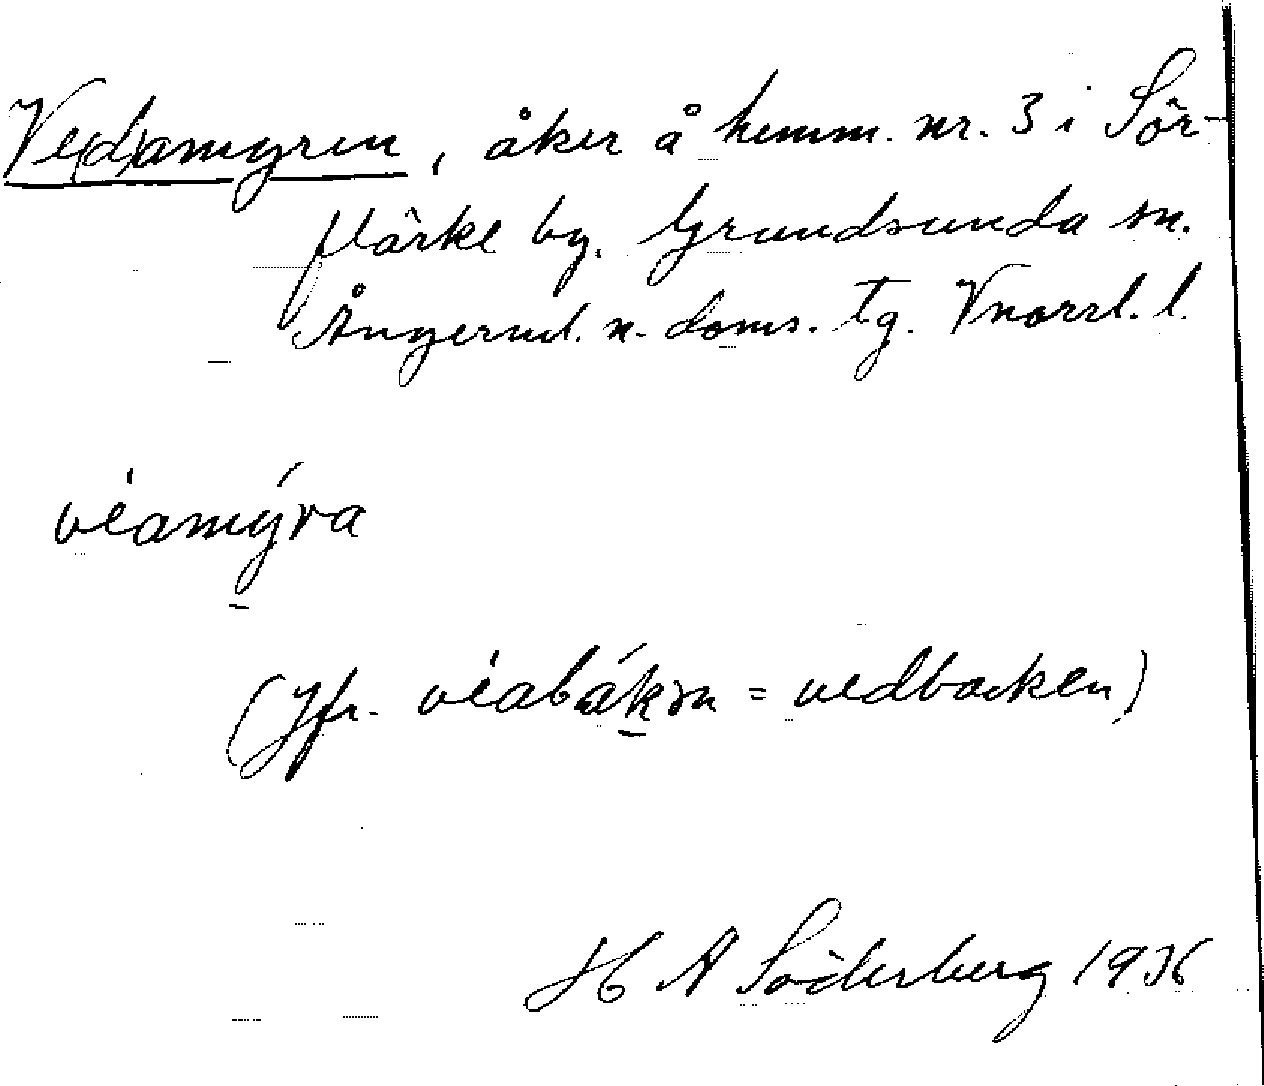 Ve(d)amyren, åker å hemm. nr. 3 i Sör-
flärke by. Grundsunda sn.
Ångerml. n. doms. tg. Vnorrl. l.
véamýra
(Jfr. véabákən = vedbacken)
H A Söderberg 1936